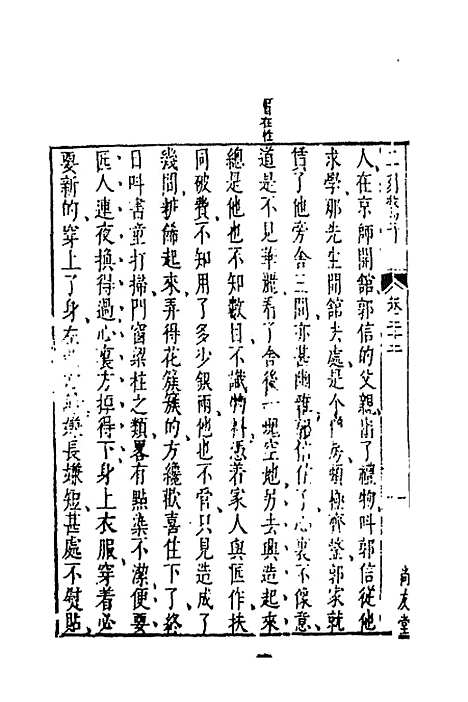 二刻驚奇
卷二十二
尚友堂
人在京師開館郭信的父親備了禮物呌郭信從他
求學那先生開館去處是個門房頗極齊整郭家就
賃了他旁舍三間亦甚幽雅郭信住了心裏不像意
道是不見華麗看了舍後一塊空地另去興造起來
總是他也不知數目不識物料憑着家人與匠作扶
同破費不知用了多少銀兩他也不管只見造成了
幾間粧飾起來弄得花簇簇的方纔歡喜住下了終
日呌書童打掃門窗梁柱之類畧有點染不潔便要
匠人連夜換得過心裏方掉得下身上衣服穿着必
要新的穿上了身左嫌長嫌短甚處不熨貼